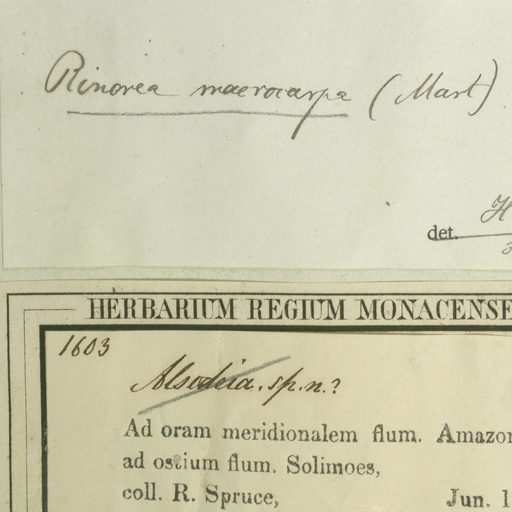 Rinorea macrocarpa (Mart)
det. H
3
HERBARIUM REGIUM MONACENSE
1603
Alsodeia. sp. n.?
Ad oram meridionalem flum. Amazon
ad ostium flum. Solimoes,
coll. R. Spruce, Jun. 1